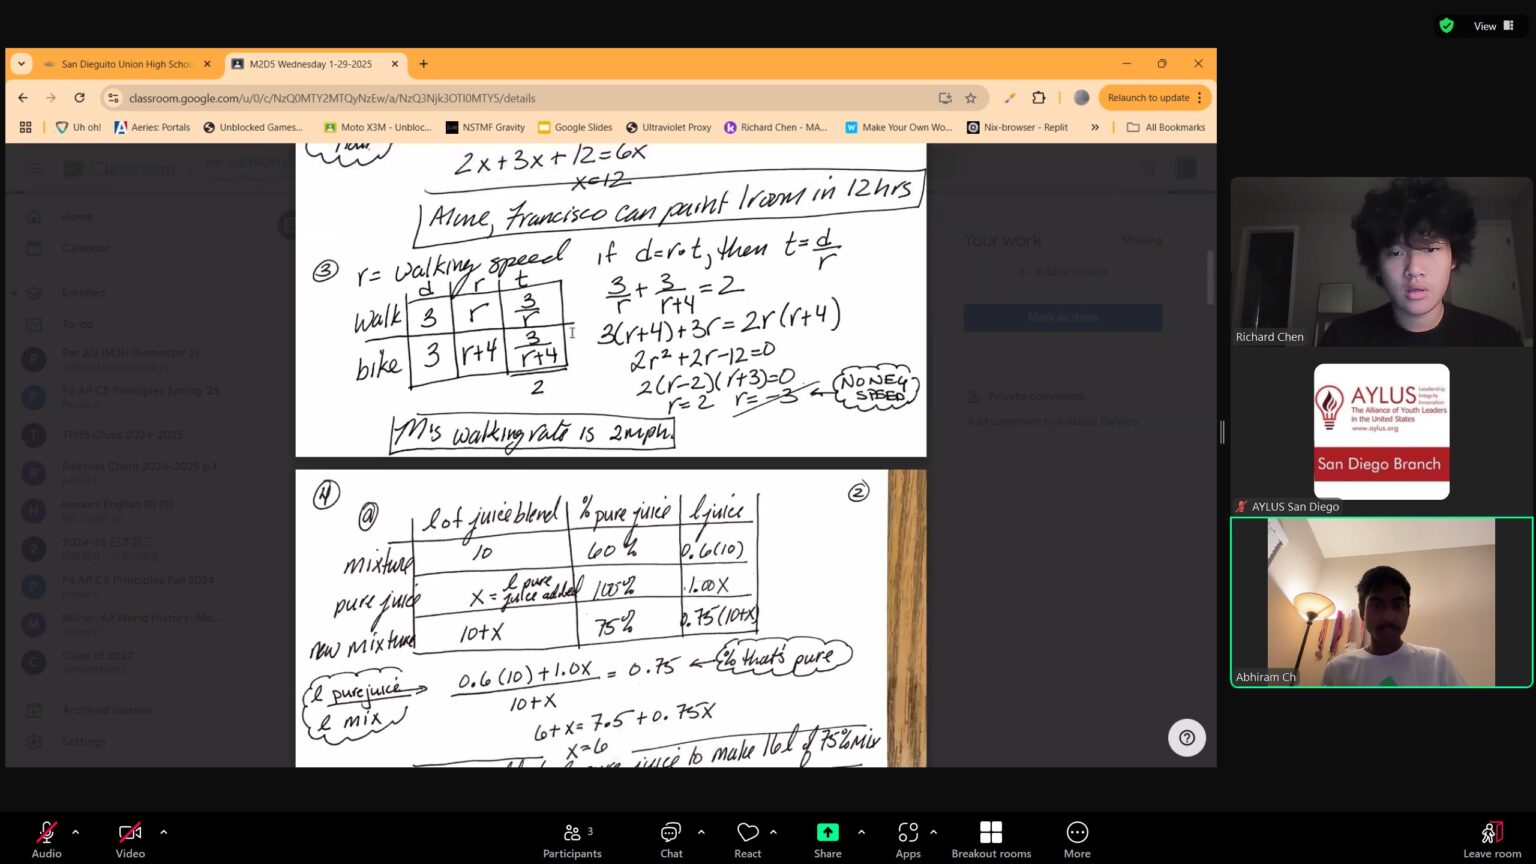 View
San Dieguito Union High Scho
M2D5 Wednesday 1-29-2025
classroom.google.com/u/0/c/NzQ0MTY2MTQyNzEw/a/NzQ3Njk3OTI0MTY5/details
Relaunch to update
Uh oh!
Aeries: Portals
Unblocked Games...
Moto X3M - Unbloc...
NSTMF Gravity
Google Slides
Ultraviolet Proxy
Richard Chen - MA...
Make Your Own Wo...
Nix-browser - Replit
All Bookmarks
Classroom
Home
Calendar
Enrolled
To-do
Per 2/3 IM3H (Semester 2)
P6 AP CS Principles Spring '25
TPHS Clubs 2024-2025
Rail Hon Chem 2024-2025 p.1
Honors English 10 (5)
2024-25
P6 AP CS Principles Fall 2024
Milner, AP World History: Mo...
Class of 2027
SOPHOMORES
Archived classes
Settings
hour
2x+3x+12=6x
x=12
Alone, Francisco can paint 1 room in 12 hrs
③ r = walking speed if d=r·t, then t=d/r
d r t
walk 3 r 3/r
bike 3 r+4 3/r+4
2
3/r + 3/r+4 = 2
3(r+4)+3r=2r(r+4)
2r²+2r-12=0
2(r-2)(r+3)=0
r=2 r=-3
NO NEG SPEED
M's walking rate is 2mph.
④ ②
ⓐ l of juice blend % pure juice l juice
mixture 10 60% 0.6(10)
pure juice x = l pure juice added 100% 1.00x
new mixture 10+x 75% 0.75(10+x)
l pure juice
l mix
0.6(10)+1.0x/10+x = 0.75
% that's pure
6+x=7.5+0.75x
x=6
pure juice to make 16l of 75% mix
Your work
Missing
Add or create
Mark as done
Private comments
Add comment to Kristine DeVlag
Richard Chen
AYLUS
Leadership
Integrity
Innovation
The Alliance of Youth Leaders
in the United States
www.aylus.org
San Diego Branch
AYLUS San Diego
Abhiram Ch
Audio
Video
3
Participants
Chat
React
Share
Apps
Breakout rooms
More
Leave room